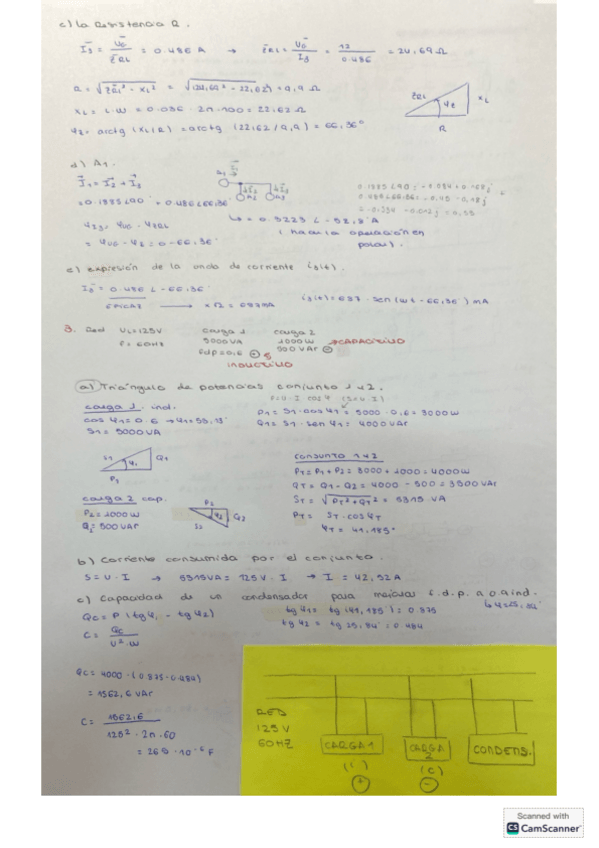 c) La Resistencia R.
I3 = U0/ZRL = 0.486 A → ZRL = U0/I3 = 12/0.486 = 24,69 Ω
R = √(ZRL² - XL²) = √(24,69² - 22,62²) = 9,9 Ω
XL = L·ω = 0.036 · 2π · 100 = 22,62 Ω
φZ = arctg (XL/R) = arctg (22,62/9,9) = 66,36°
ZRL φZ XL
R
d) A1.
I1 = I2 + I3
= 0.1885∠90 + 0.486∠66,36
φI3 = φU0 - φZRL
= φU0 - φZ = 0 - 66.36°
A1 I1
I2 I3
A2 A3
↳ = 0.3223 ∠ -52,8° A
(hacer la operación en polar).
e) expresión de la onda de corriente i3(t).
I3 = 0.486 ∠ -66,36°
EFICAZ → x√2 = 687mA
i3(t) = 687 · sen(ωt - 66,36°) mA
3. Red UL = 125V
f = 60HZ
carga 1
5000VA
fdp = 0,6
INDUCTIVO
carga 2
1000W
500VAr
→CAPACITIVO
a) Triángulo de potencias conjunto 1 y 2.
P = U · I cos φ (S = U · I)
carga 1. ind.
cos φ1 = 0,6 → φ1 = 53,13°
S1 = 5000VA
P1 = S1 · cos φ1 = 5000 · 0,6 = 3000W
Q1 = S1 · sen φ1 = 4000VAr
S1 φ1 Q1
P1
carga 2 cap.
P2 = 1000W
Q2 = 500VAr
P2
φ2 Q2
S2
conjunto 1 y 2
PT = P1 + P2 = 3000 + 1000 = 4000W
QT = Q1 - Q2 = 4000 - 500 = 3500VAr
ST = √(PT² + QT²) = 5315 VA
PT = ST · cos φT
φT = 41,185°
b) Corriente consumida por el conjunto.
S = U · I → 5315VA = 125V · I → I = 42,52A
c) Capacidad de un condensador para mejorar f.d.p. a 0,9 ind.
↳ φ = 25,84°
QC = P (tg φ1 - tg φ2)
tg φ1 = tg (41,185°) = 0.875
tg φ2 = tg 25,84° = 0.484
C = QC/(U² · ω)
QC = 4000 · (0.875 - 0.484)
= 1562,6 VAr
C = 1562,6/(125² · 2π · 60)
= 265 · 10⁻⁶ F
RED
125 V
60HZ
CARGA 1
(L)
+
CARGA 2
(C)
-
CONDENS.
Scanned with
CS CamScanner